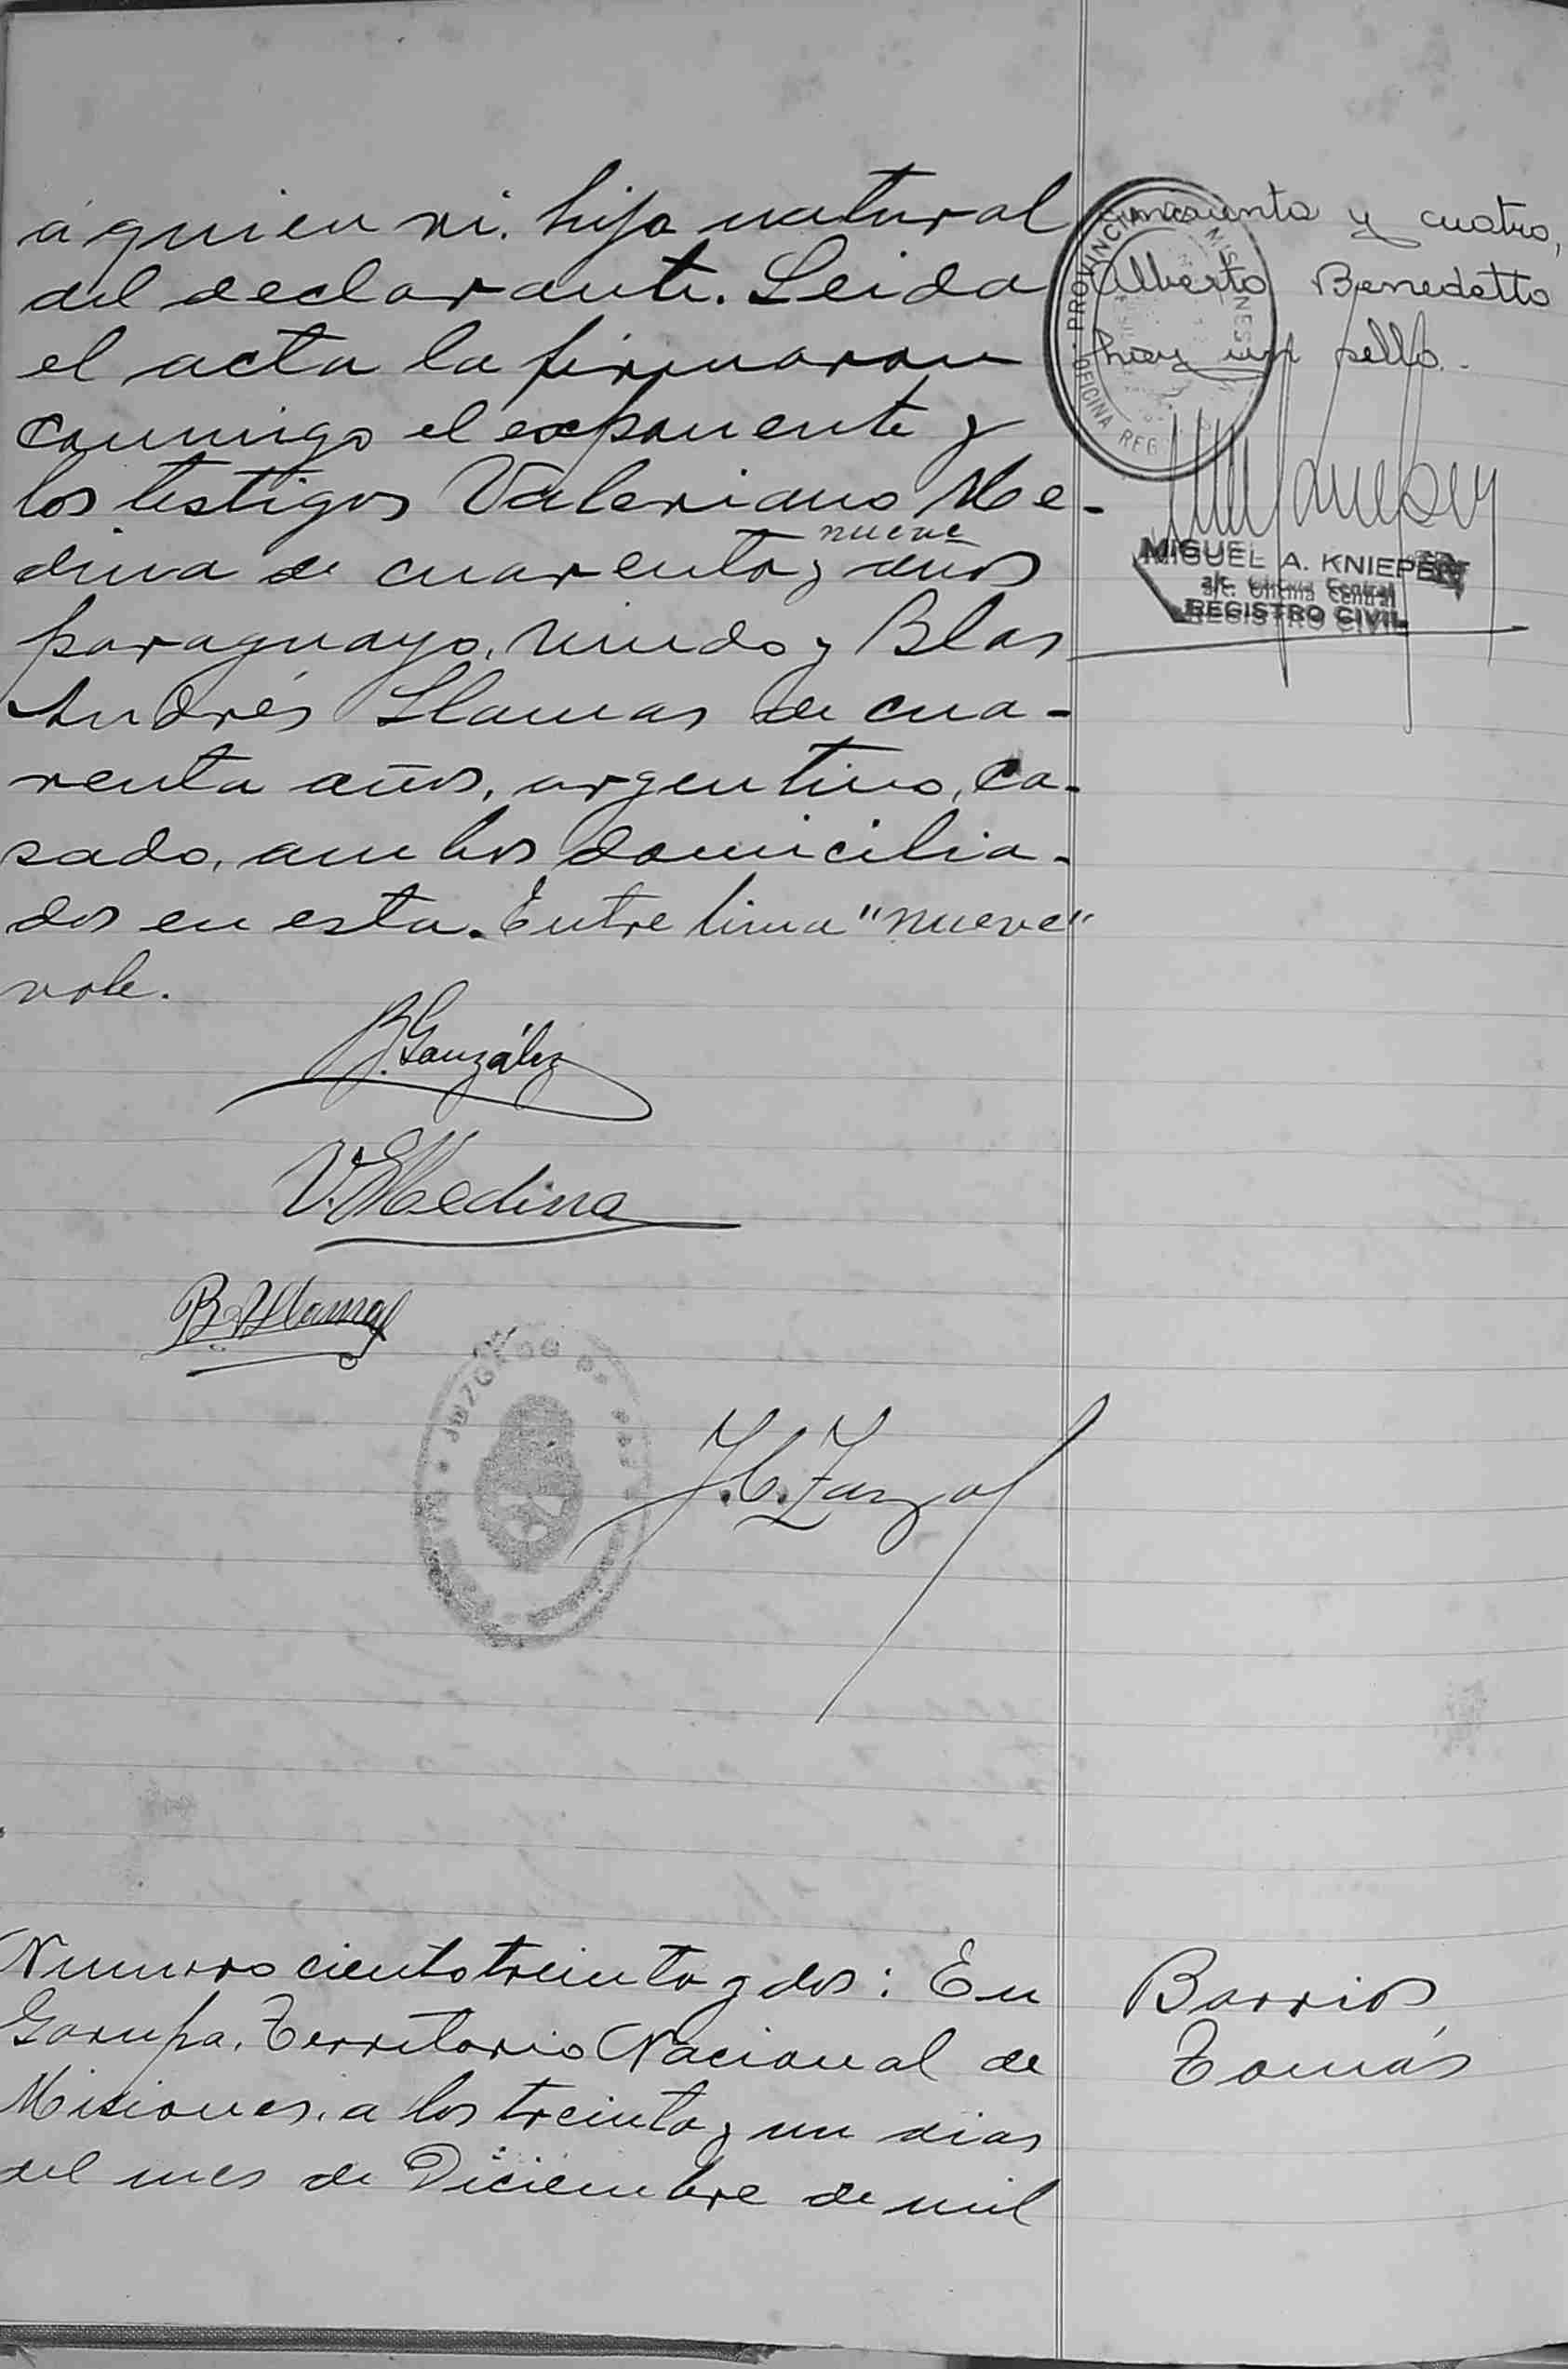 a quien vi. hijo natural
del declarante. Leida
el acta la firmaron
conmigo el exponente y
los testigos Valeriano Me-
dina de cuarenta y nueve años
paraguayo, viudo y Blas
Andrés Llamas de cua-
renta años, argentino, ca-
sado, ambos domicilia-
dos en esta. Entre linea "nueve"
vale.
B. González
V. Medina
B. A. Llamas
JUZGADO DE PAZ
J. C. Zarzal
cincuenta y cuatro,
Alberto Benedetto
hay un sello.
PROVINCIA DE MISIONES
OFICINA REG
MIGUEL A. KNIEPERT
a/c. Oficina Central
REGISTRO CIVIL
Numero ciento treinta y dos: En
Garupa, Territorio Nacional de
Misiones, a los treinta y un dias
del mes de Diciembre de mil
Barrios,
Tomás